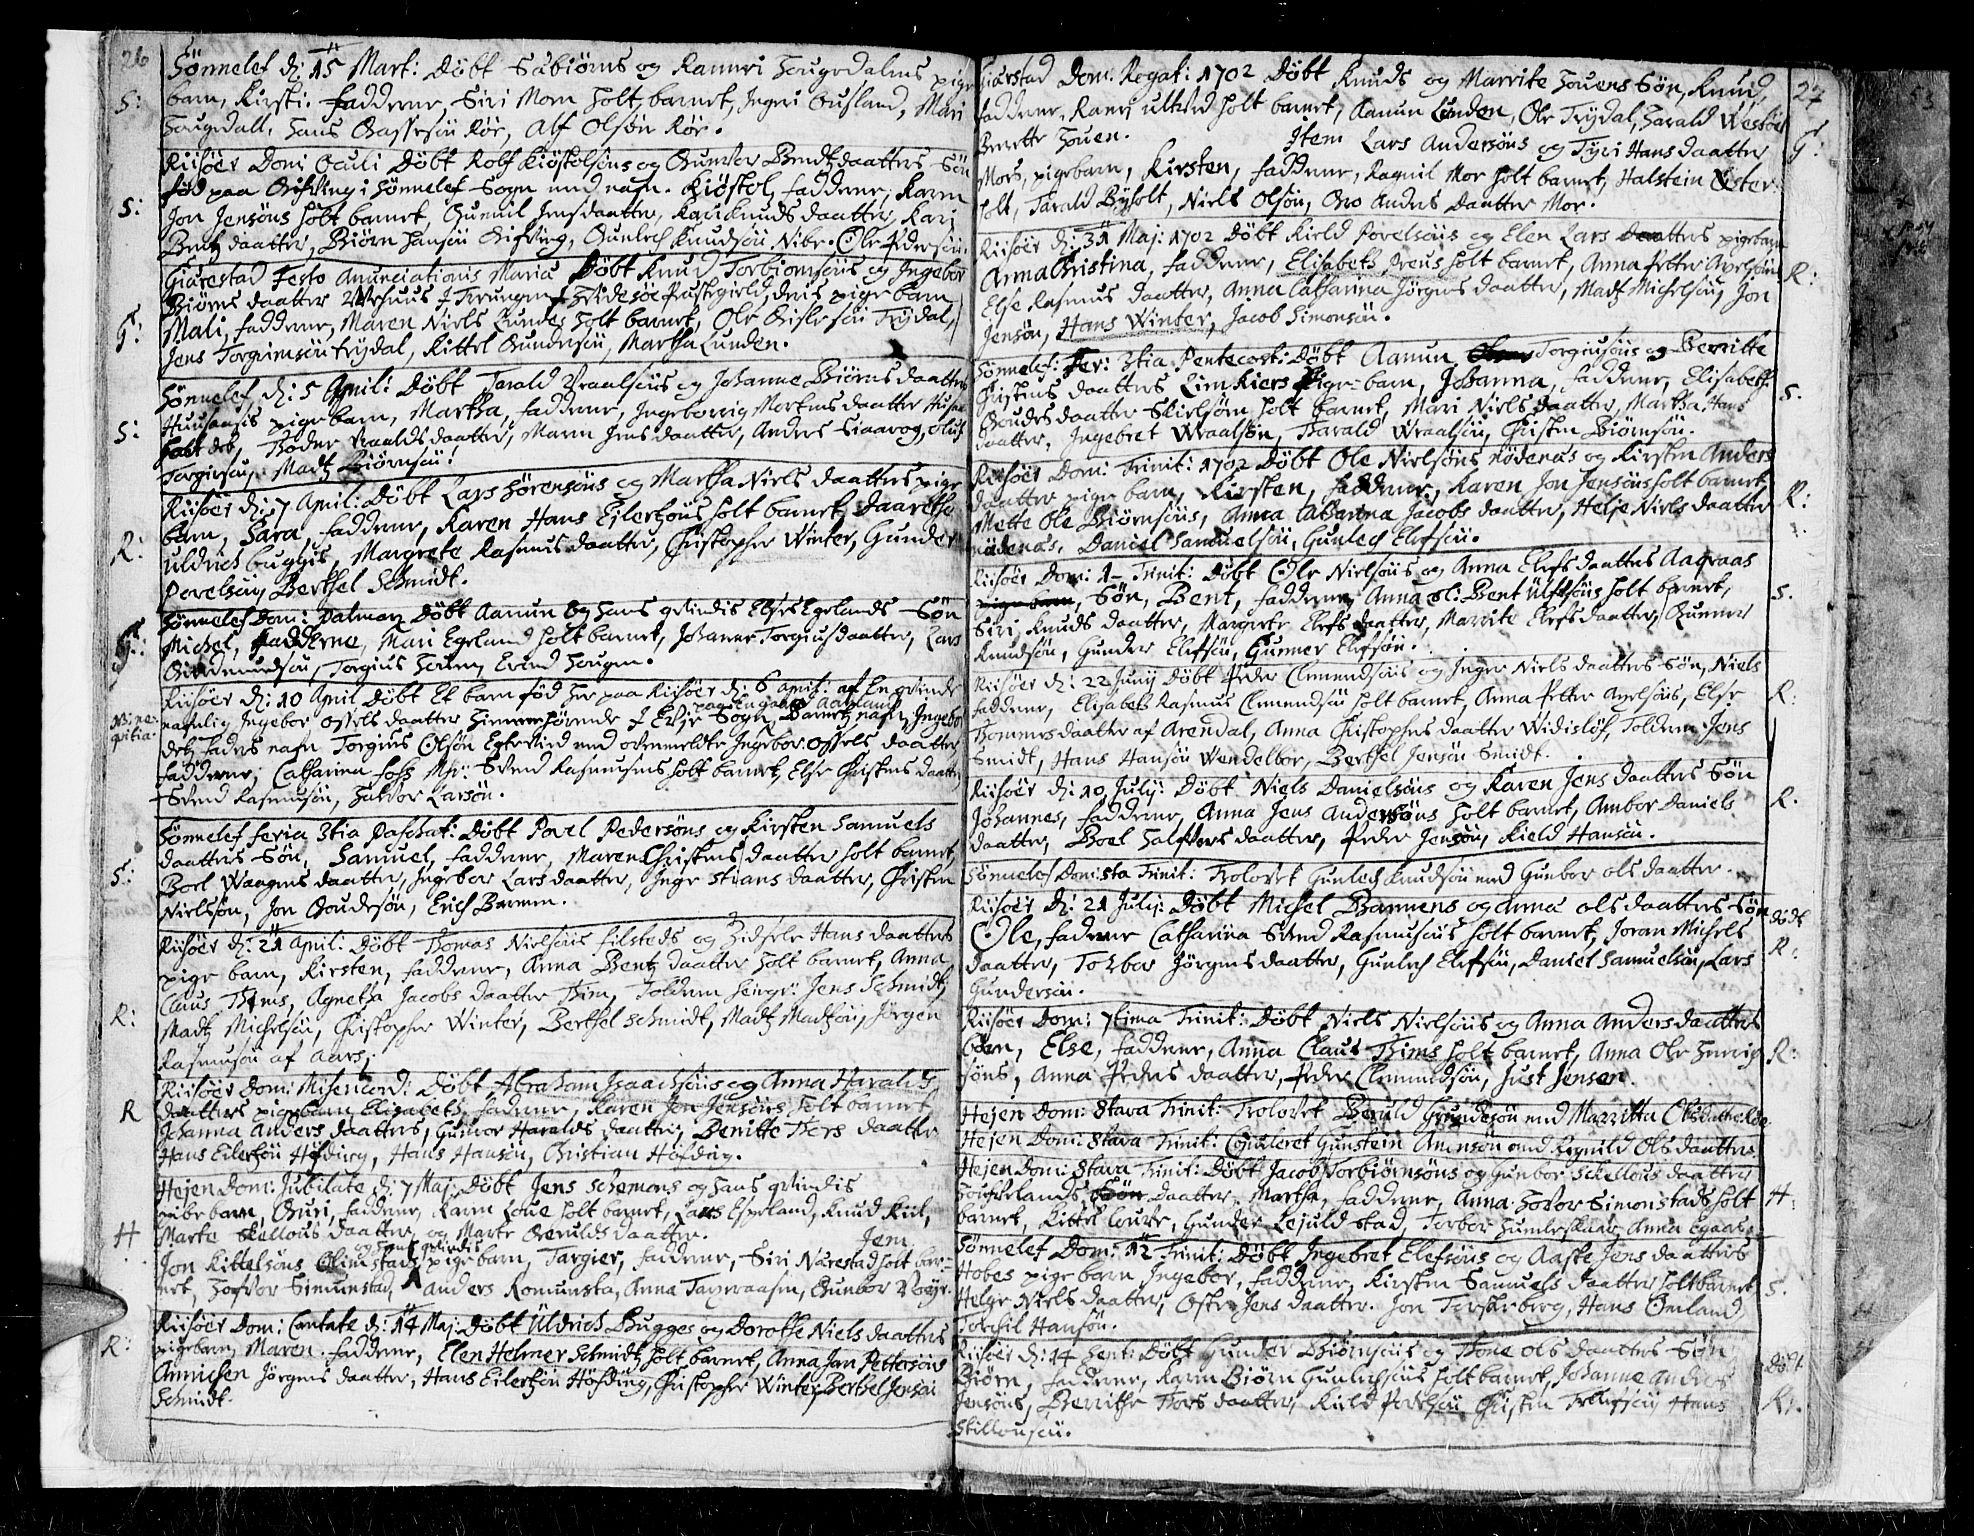 26
Sønnelef d: 15 Mart: Døbt Sæbiørns og Ranneri Hougdalms pige
S:
barn, Kirsti. Fadderne, Siri Mom holt barnet, Ingeri Ousland, Mari
Hougdall, Hans Gassesøn Rør, Alf Olsøn Rør.
Riisøer Domi Oculi Døbt Rolf Kiøstolsøns og Gunvor Bendtz daatters Søn
fød paa Gifving i Sønnelef Sogn med nafn. Kiøstol, fadderne, Karen
S:
Jon Jensøns holt barnet, Gunnil Jensdaatter, Kari Knuds daatter, Kari
Bentz daatter, Biørn Hansøn Gifving, Gunlech Knudsøn Nibe. Ole Pedersøn.
Giærestad Festo Anunciationis Mariæ Døbt Knud Torbiornsøns og Ingebor
Biørns daatter pige barn
G:
Mali, fadderne, Maren Niels Lundes holt barnet, Ole Gislesøn Trydal,
Jens Torgrimsøn trydal, Kittel Gundersøn, Martha Lunden.
Sønnelef d: 5 April: Døbt Tarald Wraalsøns og Johanne Biørns daatters
S:
pige barn, Martha, fadderne, Ingeborrig Mortens daatter
holt det, Wraalds daatter, Maren Jens daatter, Anders Siaavog, Oluf
Torgiusøn, Madtz Biørnsøn.
Riisøer d: 7 April: Døbt Lars Sørensøns og Martha Niels daatters pige
R:
barn, Sara, fadderne, Karen Hans Eilertzøns holt barnet, Daarethe
Uldrich bugges, Margrete Rasmus daatter, Christopher Winter, Gunder
Povelsøn Berthel Schmidt.
Sønnelef Dom: Palmar Døbt Aanun og hans qvindis Elses Egelands Søn
G:
Michel, fadderne, Mari Egeland holt barnet, Johanne Torgius daatter, Lars
Gudmundsøn, Torgius Houen, Evind Hougen.
Riisøer d: 10 April Døbt Et barn fød her paa Riisøer d: 6 April: af En qvinde
naunlig Ingebor Ossels daatter Sogn, Barnetz nafn, Ingebor
detz faders nafn Torgius Olsøn Egtevied med ovenmeldte Ingebor Ossels daatter
fadderne, Catharina Foss, Svend Rasmusens holt barnet, Else Christens daatter,
Svend Rasmusøn, Halvor Larsøn.
Sønnelef feria 3tia Paschat: Døbt Povel Pedersøns og Kirsten Samuels
S:
daatters Søn, Samuel, fadderne, Maren Christens daatter holt barnet,
Boel Waagens daatter, Ingebor Lars daatter, Inger Stians daatter, Christen
Nielsøn, Jon Goudesøn, Erich Barmen.
Riisøer d: 21 April: Døbt Thomas Nielsøns filsteds og Zidsele Hans daatters
pige barn, Kirsten, fadderne, Anna Bentz daatter holt barnet, Anna
R:
Claus Thims, Agnetha Jacobs daatter Thim, Jens Schmidt,
Madtz Michelsøn, Christopher Winter, Berthel Schmidt, Madtz Madtzøn, Jørgen
Rasmusøn af Aars.
Riisøer Dom: Misericord: Døbt Abraham Isaachsøns og Anna Haralds
R
daatters pigebarn Elisabeth, fadderne, Karen Jon Jensøns holt barnet
Johanna Anders daatters, Gunvor Haralds daatter, Benitte Thers daatter
Hans Eilertzøn Høfding, Hans Hansøn, Christian Høfding.
Hejen Dom: Jubilate d: 7 Maj: Døbt Jens Schemons og hans qvindis
pibe barn, Guri, fadderne, Karen Loue holt barnet, Lars Espeland, Knud Kiil,
H
Marte Skellous daatter, og Marte Gerulds daatter. Jem
og hans qvindis
Jon Kittelsøns Olimstads pigebarn, Targier, fadderne, Siri Nærestad holt bar-
net, Hofvor Simunstad, anders Romunsta, Anna Tarjeraasen, Gunbor
Riisøer Dom: Cantate d: 14 Maj: Døbt Uldrich Bugges og Dorothe Niels daatters
R:
pigebarn, Maren. fadderne, Elen Helmer Schmidt holt barnet, Anna Jan Pettersøns
Annichen Jørgens daatter, Hans Eilertzøn Høfding, Christopher Winter, Berthel Jensøn
Schmidt.
27
Giærstad Dom: Rogat: 1702 Døbt Knuds og Marrite Houens Søn, Knud,
G:
fadderne, Raneri holt barnet, Aanun Lunden, Ole Trydal, Harald Westøe
Berette Houen. Item Lars Andersøns og Tyri Hans daatter
Mors, pigebarn, Kirsten, fadderne, Ragnil Mor holt barnet, Halstein Øster
holt, Tarald Byholt, Niels Olsøn, Gro Anders daatter Mor.
Riisøer d: 31 Maj: 1702 Døbt Kield Povelsøns og Elen Lars daatters pigebarn
R:
Anna Christina, fadderne, Elisabeth Preus holt barnet, Anna Petter Axelsøns
Else Rasmus daatter, Anna Catharina Jørgens daatter, Madtz Michelsøn, Jon
Jensøn, Hans Winter, Jacob Simonsøn.
Sønnelef: Fer: 3tia Pentecost: Døbt Aanun Torgiusøns og Berritte
S.
Christens daatters Limkiers Pige-barn, Johanna, fadderne, Elisabeth
Goudes daatter Skielsøm holt barnet, Mari Niels daatter, Martha Hans
daatter, Ingebret Wraalsøn, Tharald Wraalsøn, Christen Biørnsøn.
Riisøer Dom: Trinit: 1702 Døbt Ole Nielsøns Rødenas og Kirsten Anders
R:
daatter pige barn, Kirsten, fadderne, Karen Jon Jensøns holt barnet,
Mette Ole Biørnsøns, Anna Catharina Jacobs daatter, Helje Niels daatter
Rødenas, Daniel Samuelsøn, Gunlech Elefsøn.
Riisøer Dom: 1 Trinit: Døbt Ole Nielsøns og Anna Elefs daatters Aagraas
S.
Søn, Bent, fadderne, Anna Bent Ulfsøns holt barnet,
Siri Knuds daatter, Margrete Elefs daatter, Marrite Elefs daatter, Gunner
Knudsøn, Gunder Elefsøn, Gunner Elefsøn.
Riisøer d: 22 Junij Døbt Peder Clemendsøns og Inger Niels daatters Søn, Niels
R:
fadderne, Elisabeth Rasmus Clemendsøn holt barnet, Anna Petter Axelsøns, Else
Thommes daatter af Arendal, Anna Christophers daatter Widisløf, Jens
Smidt, Hans Hansøn Wendelboe, Berthel Jensøn Smidt.
Riisøer d: 10 Julij: Døbt Niels Danielsøns og Karen Jens daatters Søn
R.
Johannes, fadderne, Anna Jens Andersøns holt barnet, Ambor Daniels
daatter, Boel Halfvors daatter, Peder Jensøn, Kield Hansøn.
Sønnelef Dom: 5ta Trinit: Trolovet Gunlech Knudsøn med Gunbor Ols daatter.
Riisøer d: 21 Julij: Døbt Michel Bannens og Anna Ols daatters Søn
Dødt
R:
Ole, fadderne Catharina Svend Rasmusøns holt barnet, Joran Michels
daatter, Torbor Jørgens daatter, Gunlech Elefsøn, Daniel Samuelsøn, Lars
Gundersøn.
Riisøer Dom: 7tima Trinit: Døbt Niels Nielsøns og Anna Anders daatters
R:
børn, Else, fadderne, Anna Claus Thims holt barnet, Anna Ole Henrig
søns, Anna Peders daatter, Peder Clemendsøn, Just Jensen.
Hejen Dom: 8tava Trinit: Trolovet Beruld Gundersøn med Marritta Olsdatter
Hejen Dom: 8tava Trinit: Copuleret Gunstein Amensøn med Regnild Ols daatter.
Hejen Dom: 8tava Trinit: Døbt Jacob Torbiørnsøns og Gunbor Schellous daatter
H:
daatter, Martha, fadderne, Anna Hovor Simonstads holt
barnet, Kittel Louve, Gunder Lejuldstad, Torbor Humleskaar, Anna Egaas.
Sønnelef Dom: 12 Trinit: Døbt Ingebret Elefsøns og Aaste Jens daatters
S.
Hobes pige barn Ingebor, fadderne, Kirsten Samuels daatter holt barnet
Helge Niels daatter, Oste Jens daatter. Jon Torskeberg, Hans Omland
Torchil Hansøn.
Riisøer d: 14 Sept: Døbt Gunder Biørnsøns og Thone Ols daatters Søn
Dødt
R.
Biørn, fadderne, Karen Biørn Gunlechsøns holt barnet, Johanne Anders
Jensøns, Berrithe Thors daatter, Kield Povelsøn Christen Trellefsøn Hans
Skillousøn.